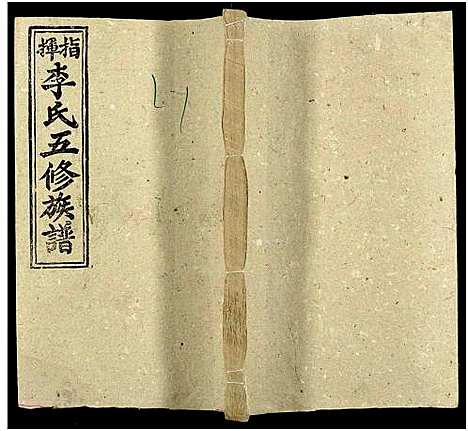 指揮
李氏五修族譜